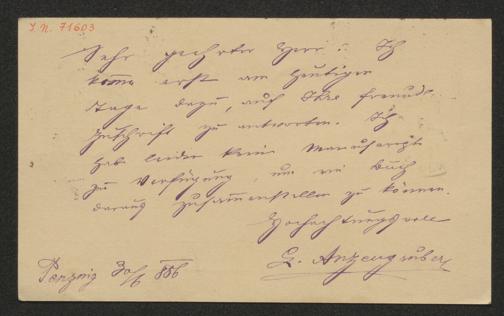 I. N. 71603
Sehr geehrter Herr! Ich
komme erst am heutigen
Tage dazu, auf Ihre freundl.
Zuschrift zu antworten. Ich
hab leider kein Manuscript
zu Verfügung, um ein Buch
daraus zusammenstellen zu können.
Hochachtungsvoll
L. Anzengruber
Penzing 30/6 886